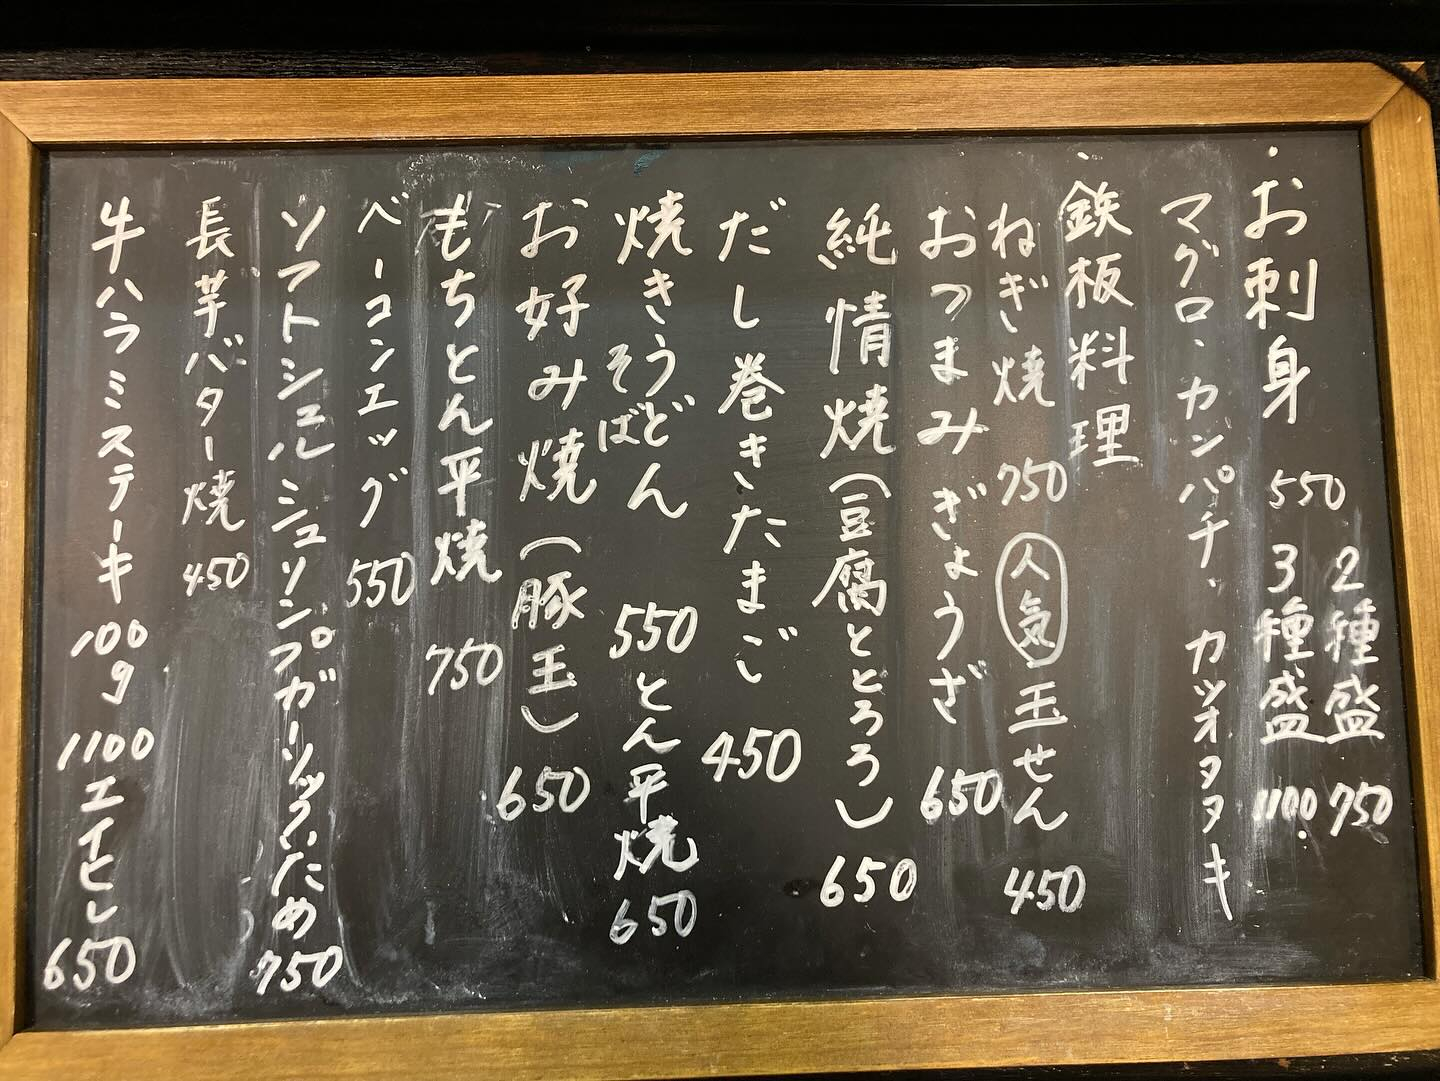 ・お刺身 550 2種盛 750
3種盛 1100
マグロ、カンパチ、カツオタタキ
・鉄板料理
ねぎ焼 750 人気 玉せん 450
おつまみぎょうざ 650
純情焼(豆腐ととろろ) 650
だし巻きたまご 450
焼きうどん そば 550 とん平焼 650
お好み焼(豚玉) 650
もちとん平焼 750
ベーコンエッグ 550
ソフトシェルシュリンプガーリックいため 750
長芋バター焼 450
牛ハラミステーキ 100g 1100 エイヒレ 650